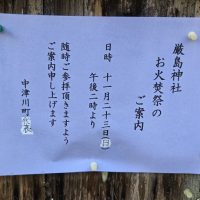 厳島神社
お火焚祭の
ご案内
日時 十一月二十三日(日)
午後二時より
随時ご参拝頂きますよう
ご案内申し上げます
中津川町